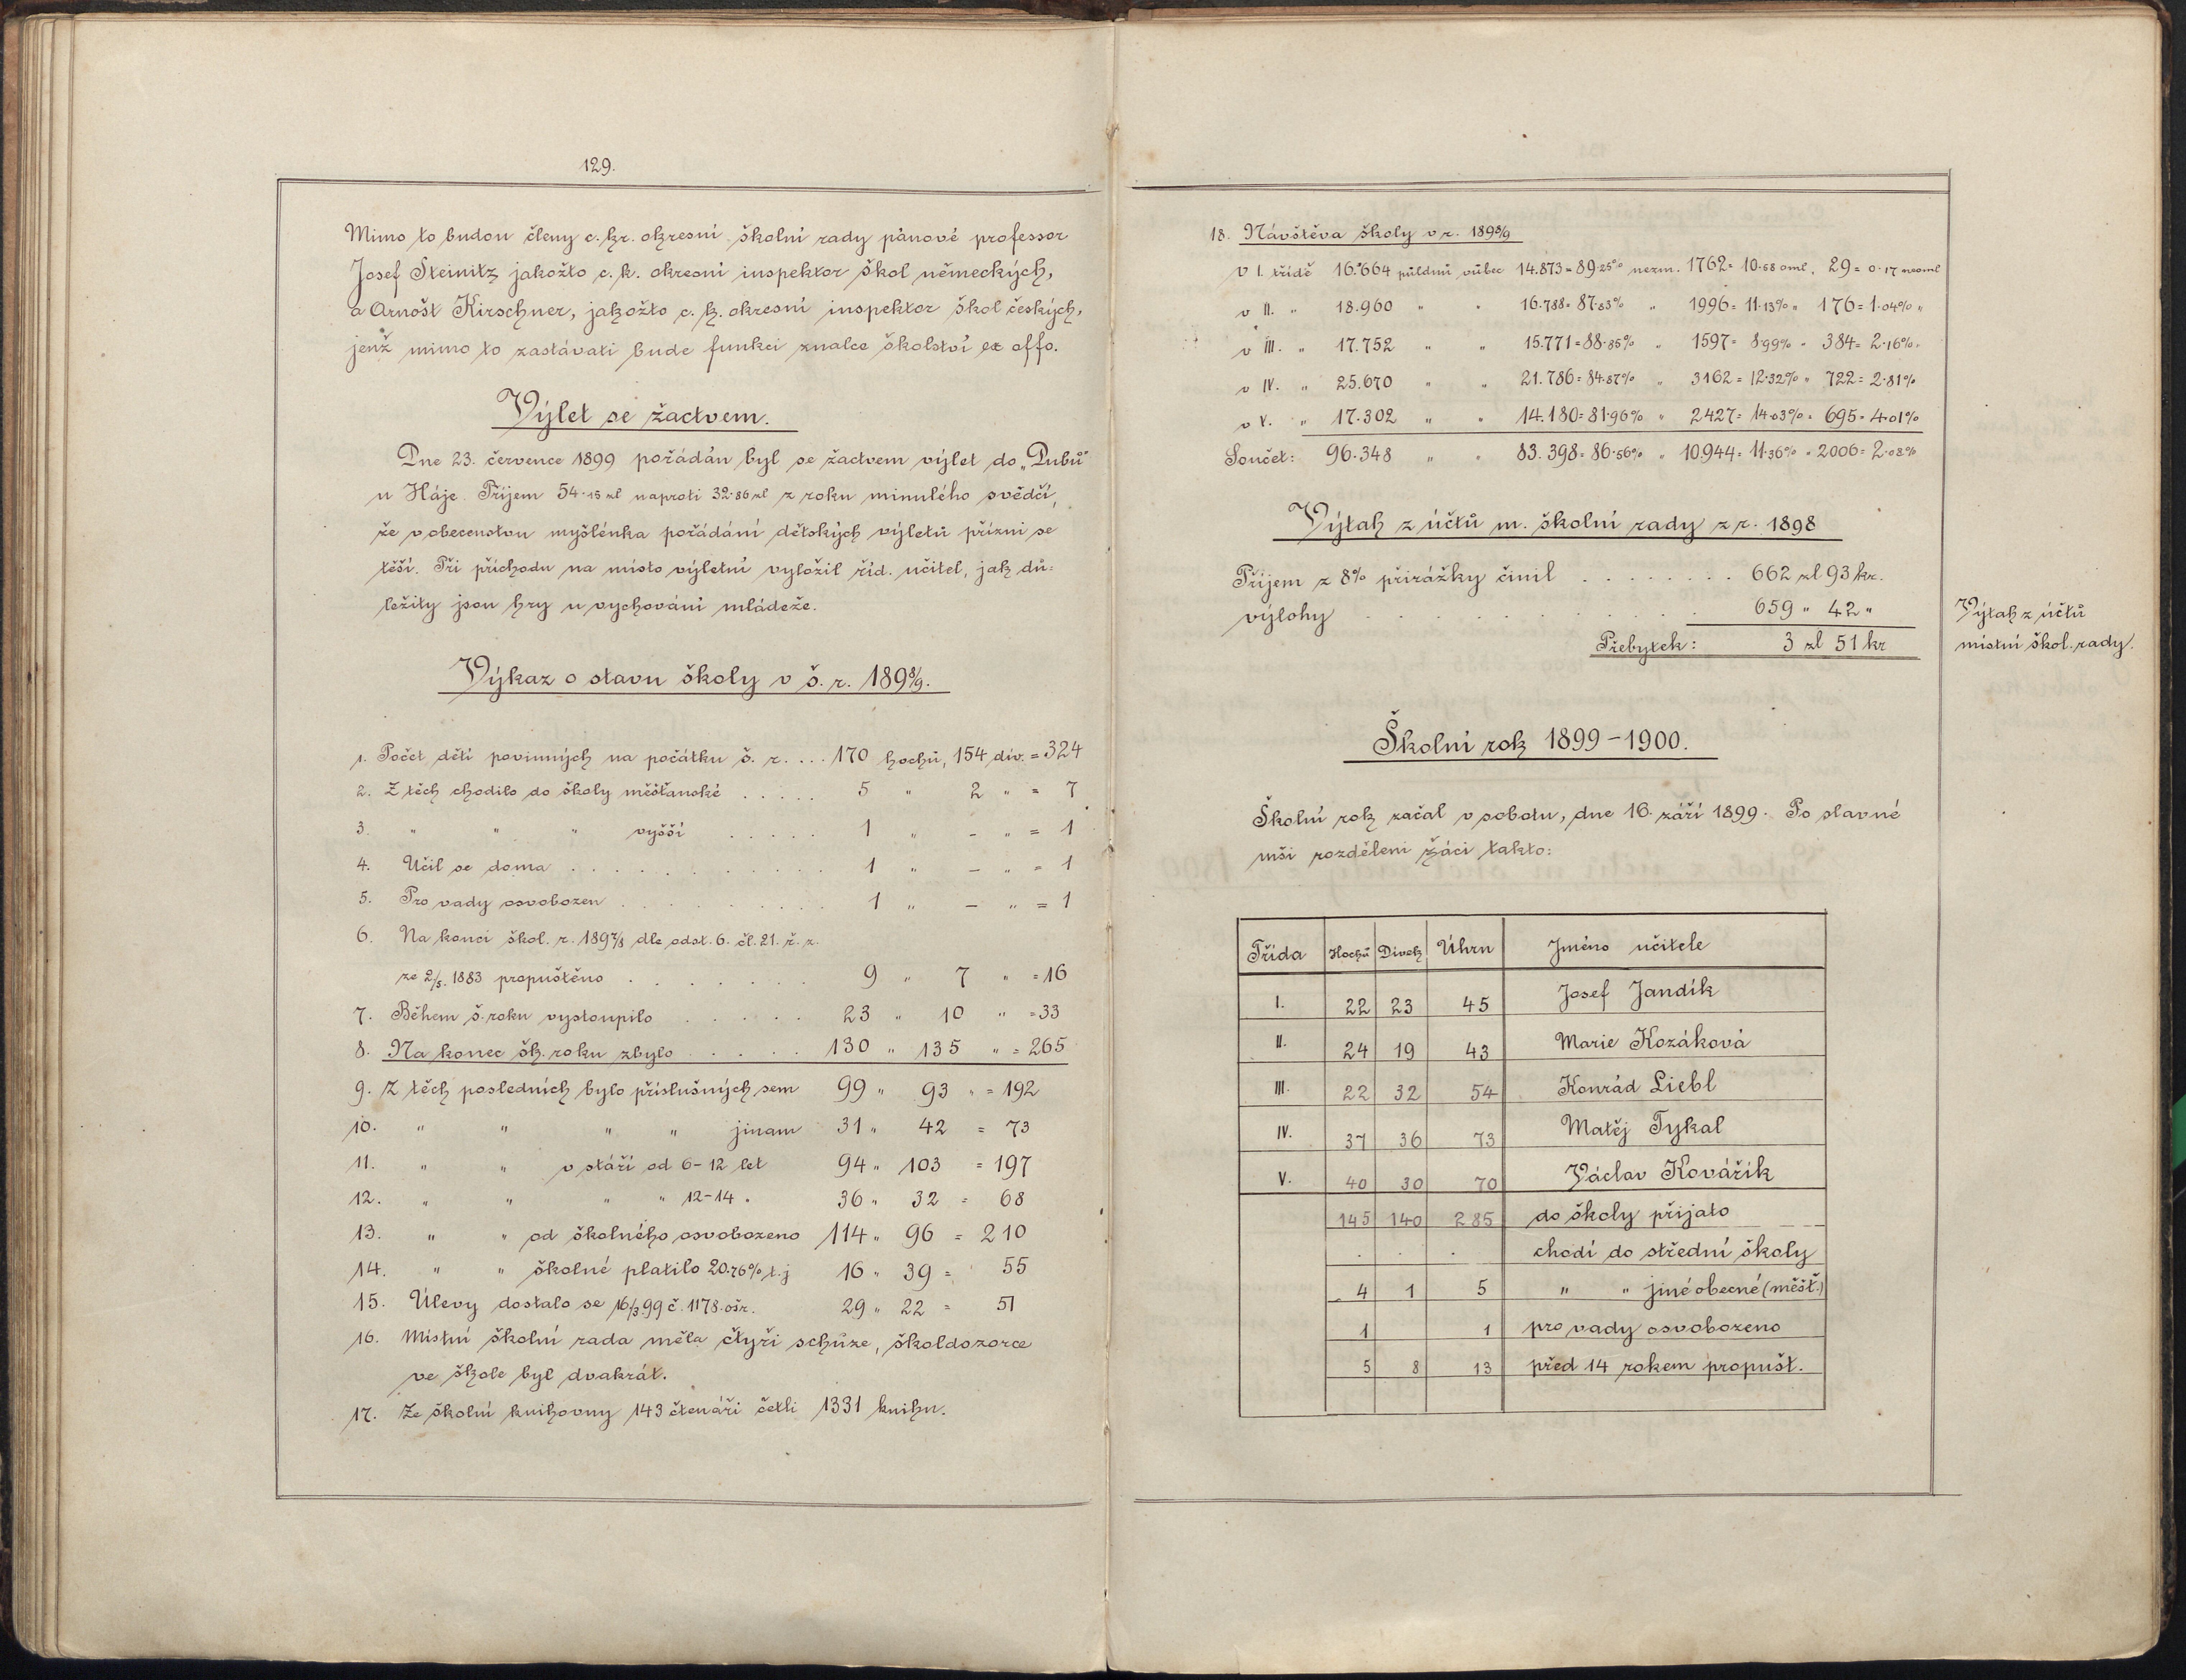 129.
Mimo to budou členy c. kr. okresní školní rady pánové professor
Josef Steinitz jakožto c. k. okresní inspektor škol německých,
a Arnošt Kirschner, jakožto c. k. okresní inspektor škol českých,
jenž mimo to zastávati bude funkci znalce školství ex offo.
Výlet se žactvem.
Dne 23. července 1899 pořádán byl se žactvem výlet do „Dubů"
u Háje. Příjem 54·15 zl naproti 32·86 zl z roku minulého svědčí,
že v obecenstvu myšlénka pořádání dětských výletů přízni se
těší. Při příchodu na místo výletní vyložil říd. učitel, jak dů=
ležity jsou hry u vychování mládeže.
Výkaz o stavu školy v š. r. 1898/9.
1. Počet dětí povinných na počátku š. r. ... 170 hochů, 154 dív. = 324
2. Z těch chodilo do školy měšťanské ..... 5 " 2 " = 7
3. " " " vyšší ..... 1 " - " = 1
4. Učil se doma ........... 1 " - " = 1
5. Pro vady osvobozen .......... 1 " - " = 1
6. Na konci škol. r. 1897/8 dle odst. 6. čl. 21. ř. z.
ze 2/5. 1883 propuštěno ....... 9 " 7 " = 16
7. Během š. roku vystoupilo ..... 23 " 10 " = 33
8. Na konec šk. roku zbylo .... 130 " 135 " = 265
9. Z těch posledních bylo příslušných sem 99 " 93 " = 192
10. " " " " jinam 31 " 42 = 73
11. " " v stáří od 6-12 let 94 " 103 = 197
12. " " " " 12-14 " 36 " 32 = 68
13. " " od školného osvobozeno 114 " 96 = 210
14. " " školné platilo 20.76% t. j 16 " 39 = 55
15. Úlevy dostalo se 16/3.99 č. 1178. ošr. 29 " 22 = 51
16. Místní školní rada měla čtyři schůze, školdozorce
ve škole byl dvakrát.
17. Ze školní knihovny 143 čtenáři četli 1331 knihu.
18. Návštěva školy v r. 1898/9
v I. třídě 16.664 půldnů vůbec 14.873 = 89·25% nezm. 1762 = 10·58 oml, 29 = 0·17 neoml
v II. " 18.960 " " 16.788 = 87·83% " 1996 = 11·13% " 176 = 1·04% "
v III. " 17.752 " " 15.771 = 88·85% " 1597 = 8·99% " 384 = 2·16% "
v IV. " 25.670 " " 21.786 = 84·87% " 3162 = 12·32% " 722 = 2·81%
v V. " 17.302 " " 14.180 = 81·96% " 2427 = 14·03% " 695 = 4·01%
Součet: 96.348 " " 83.398 = 86·56% " 10.944 = 11·36% " 2006 = 2·08%
Výtah z účtů m. školní rady z r. 1898
Příjem z 8% přirážky činil ........ 662 zl 93 kr.
výlohy ......... 659 " 42 "
Přebytek: 3 zl 51 kr
Výtah z účtů
místní škol. rady.
Školní rok 1899-1900.
Školní rok začal v sobotu, dne 16. září 1899. Po slavné
mši rozděleni žáci takto:
Třída Hochů Dívek Úhrn Jméno učitele
I. 22 23 45 Josef Jandík
II. 24 19 43 Marie Kozáková
III. 22 32 54 Konrád Liebl
IV. 37 36 73 Matěj Tykal
V. 40 30 70 Václav Kovářík
145 140 285 do školy přijato
. . . chodí do střední školy
4 1 5 " " jiné obecné (měšť.)
1 1 pro vady osvobozeno
5 8 13 před 14 rokem propušt.